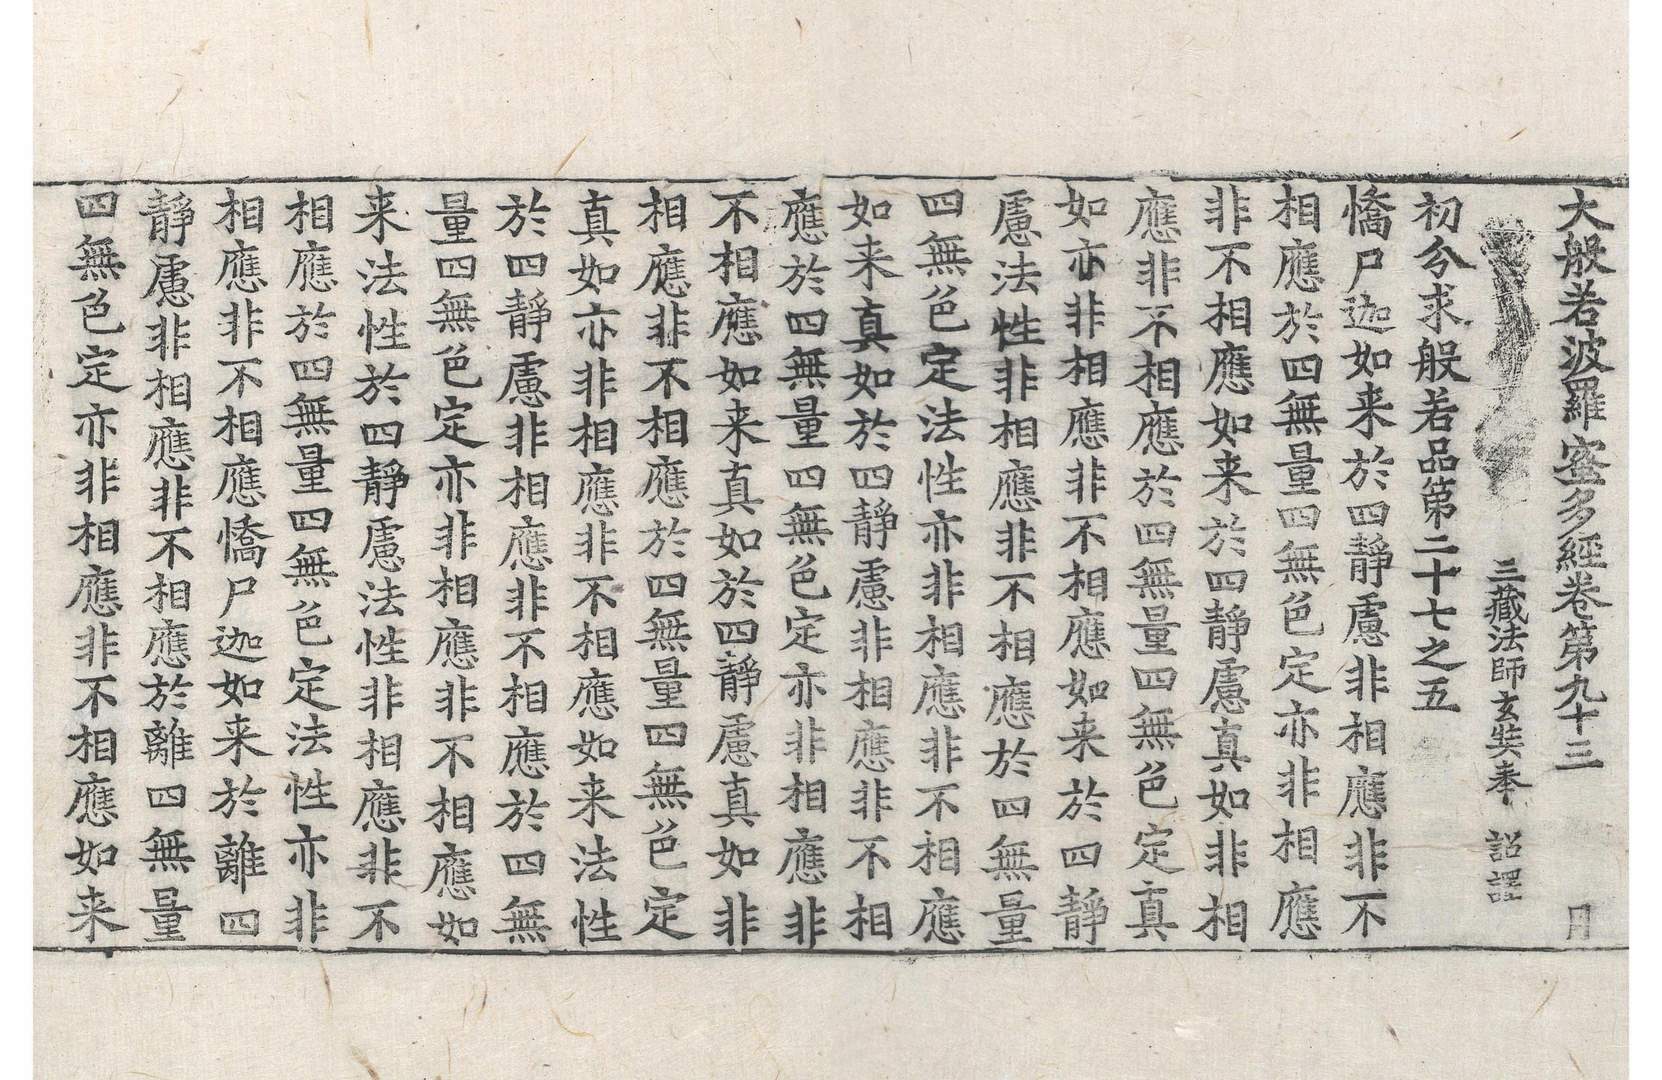 大般若波羅蜜多經卷第九十三 月
三藏法師玄奘奉 詔譯
初分求般若品第二十七之五
憍尸迦如来於四靜慮非相應非不
相應於四無量四無色定亦非相應
非不相應如来於四靜慮真如非相
應非不相應於四無量四無色定真
如亦非相應非不相應如来於四靜
慮法性非相應非不相應於四無量
四無色定法性亦非相應非不相應
如来真如於四靜慮非相應非不相
應於四無量四無色定亦非相應非
不相應如来真如於四靜慮真如非
相應非不相應於四無量四無色定
真如亦非相應非不相應如来法性
於四靜慮非相應非不相應於四無
量四無色定亦非相應非不相應如
来法性於四靜慮法性非相應非不
相應於四無量四無色定法性亦非
相應非不相應憍尸迦如来於離四
靜慮非相應非不相應於離四無量
四無色定亦非相應非不相應如来